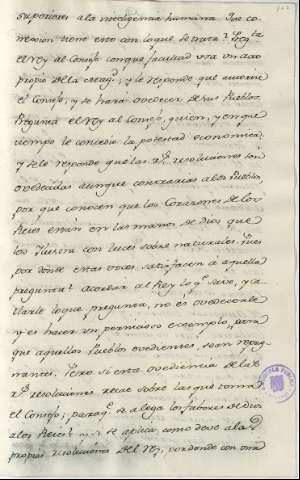 superiores a la inteligencia humana. Que co
nexion tiene esto con lo que se trata? Pregta
el rey al Consejo con que facultad usa un acto
propio de la et q.; y le responde que autorice
el Consejo, y se hará obedecer de sus Pueblos.
Pregunta el rey al Consejo, quien, y en que
tiempo le concedio la potestad economica,
y se le responde que las Rs. resoluciones son
obedecidas aunque contrarias a los Pueblos,
por que conocen que los Corazones de los
Reies están en las manos de dios que
los Ilustra con luces sobre naturales. Pues
por donde estas voces satisfacen a aquella
pregunta? acordar al Rey lo q. deve, y ca
llarle lo que pregunta, no es obedecerle
y es hacer un pernicioso exemplo, para
que aquellos Pueblos obedientes, sean repug
nantes. Pero si esta obediencia de las
Rs. resoluciones recae sobre las que toma
el Consejo; para q. se alega los favores de dios
a los Reies? y si se aplica, como deve a las
propias resoluciones del Rey, por donde con una